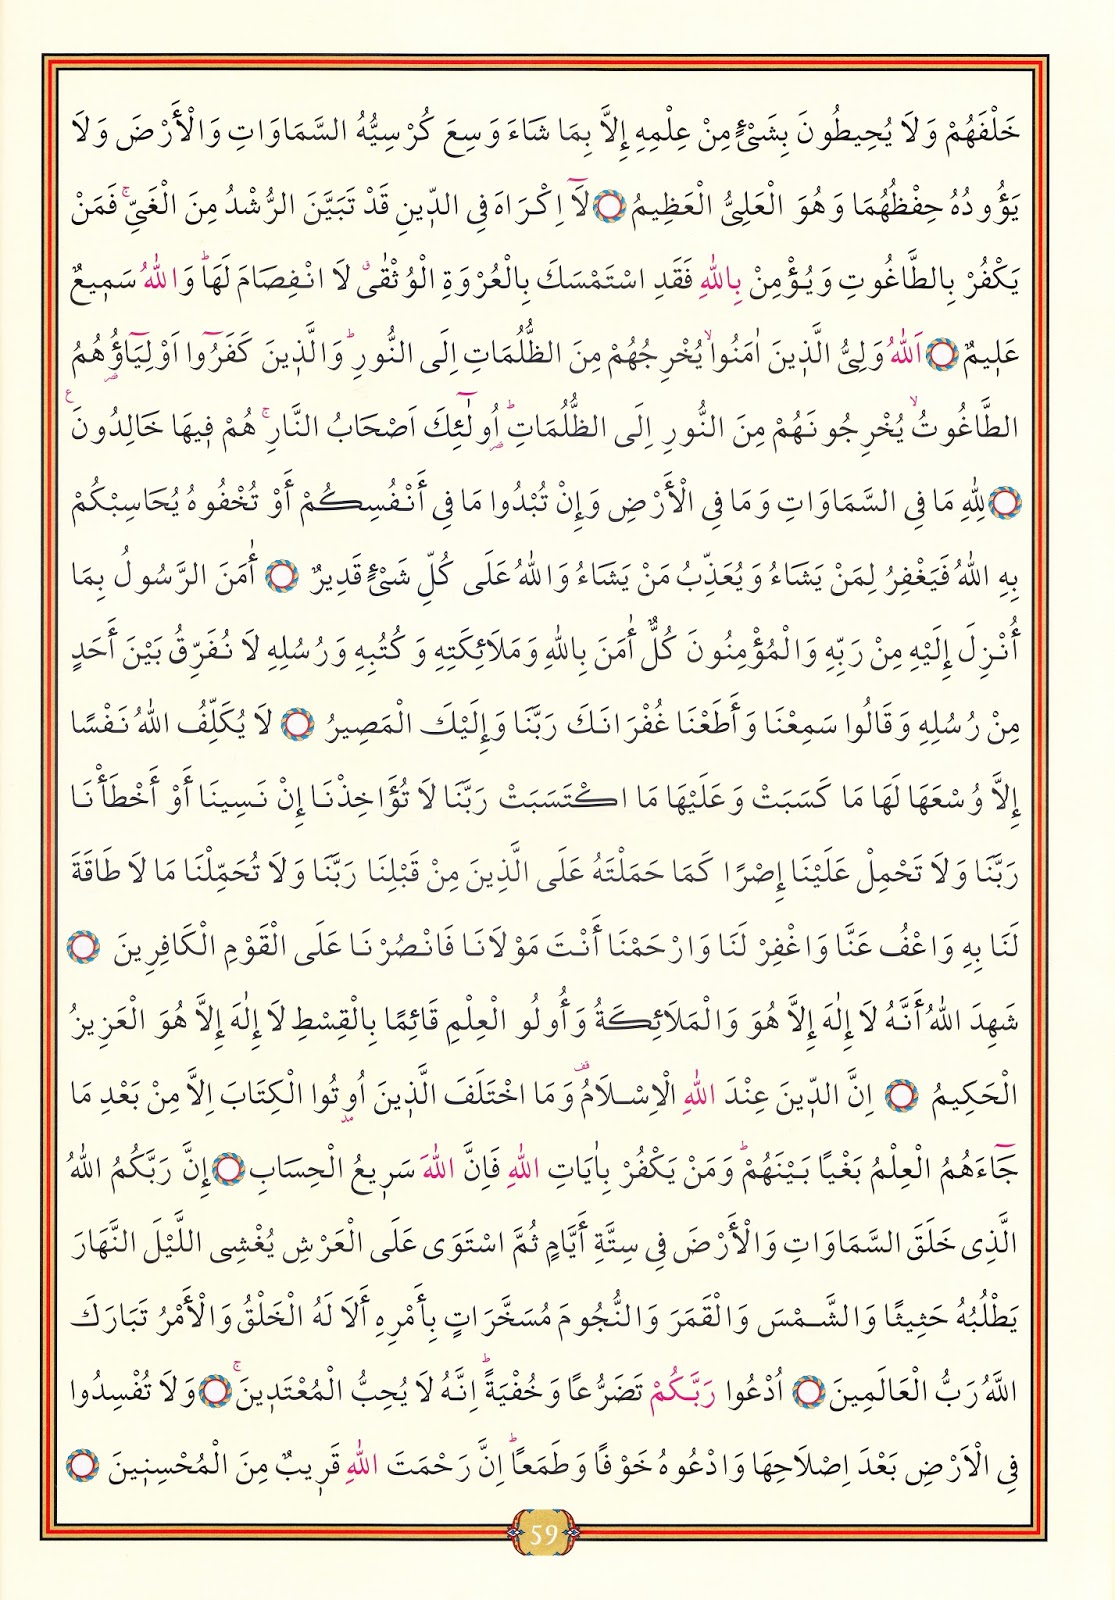 خَلْفَهُمْ وَلَا يُحِيطُونَ بِشَيْءٍ مِنْ عِلْمِهِ إِلَّا بِمَا شَاءَ وَسِعَ كُرْسِيُّهُ السَّمَاوَاتِ وَالْأَرْضَ وَلَا
يَؤُودُهُ حِفْظُهُمَا وَهُوَ الْعَلِيُّ الْعَظِيمُ ۝ لَٓا اِكْرَاهَ فِي الدّ۪ينِ قَدْ تَبَيَّنَ الرُّشْدُ مِنَ الْغَيِّۚ فَمَنْ
يَكْفُرْ بِالطَّاغُوتِ وَيُؤْمِنْ بِاللّٰهِ فَقَدِ اسْتَمْسَكَ بِالْعُرْوَةِ الْوُثْقٰىۗ لَا انْفِصَامَ لَهَاۜ وَاللّٰهُ سَم۪يعٌ
عَل۪يمٌ ۝ اَللّٰهُ وَلِيُّ الَّذ۪ينَ اٰمَنُواۙ يُخْرِجُهُمْ مِنَ الظُّلُمَاتِ اِلَى النُّورِۜ وَالَّذ۪ينَ كَفَرُٓوا اَوْلِيَٓاؤُ۬هُمُ
الطَّاغُوتُۙ يُخْرِجُونَهُمْ مِنَ النُّورِ اِلَى الظُّلُمَاتِۜ اُو۬لٰٓئِكَ اَصْحَابُ النَّارِۚ هُمْ ف۪يهَا خَالِدُونَ۟
۝ لِلّٰهِ مَا فِي السَّمَاوَاتِ وَمَا فِي الْأَرْضِ وَإِنْ تُبْدُوا مَا فِي أَنْفُسِكُمْ أَوْ تُخْفُوهُ يُحَاسِبْكُمْ
بِهِ اللّٰهُ فَيَغْفِرُ لِمَنْ يَشَاءُ وَيُعَذِّبُ مَنْ يَشَاءُ وَاللّٰهُ عَلَى كُلِّ شَيْءٍ قَدِيرٌ ۝ أٰمَنَ الرَّسُولُ بِمَا
أُنْزِلَ إِلَيْهِ مِنْ رَبِّهِ وَالْمُؤْمِنُونَ كُلٌّ أٰمَنَ بِاللّٰهِ وَمَلَائِكَتِهِ وَكُتُبِهِ وَرُسُلِهِ لَا نُفَرِّقُ بَيْنَ أَحَدٍ
مِنْ رُسُلِهِ وَقَالُوا سَمِعْنَا وَأَطَعْنَا غُفْرَانَكَ رَبَّنَا وَإِلَيْكَ الْمَصِيرُ ۝ لَا يُكَلِّفُ اللّٰهُ نَفْسًا
إِلَّا وُسْعَهَا لَهَا مَا كَسَبَتْ وَعَلَيْهَا مَا اكْتَسَبَتْ رَبَّنَا لَا تُؤَاخِذْنَا إِنْ نَسِينَا أَوْ أَخْطَأْنَا
رَبَّنَا وَلَا تَحْمِلْ عَلَيْنَا إِصْرًا كَمَا حَمَلْتَهُ عَلَى الَّذِينَ مِنْ قَبْلِنَا رَبَّنَا وَلَا تُحَمِّلْنَا مَا لَا طَاقَةَ
لَنَا بِهِ وَاعْفُ عَنَّا وَاغْفِرْ لَنَا وَارْحَمْنَا أَنْتَ مَوْلَانَا فَانْصُرْنَا عَلَى الْقَوْمِ الْكَافِرِينَ ۝
شَهِدَ اللّٰهُ أَنَّهُ لَا إِلٰهَ إِلَّا هُوَ وَالْمَلَائِكَةُ وَأُولُو الْعِلْمِ قَائِمًا بِالْقِسْطِ لَا إِلٰهَ إِلَّا هُوَ الْعَزِيزُ
الْحَكِيمُ ۝ اِنَّ الدّ۪ينَ عِنْدَ اللّٰهِ الْاِسْلَامُ۠ وَمَا اخْتَلَفَ الَّذ۪ينَ اُو۫تُوا الْكِتَابَ اِلَّا مِنْ بَعْدِ مَا
جَٓاءَهُمُ الْعِلْمُ بَغْيًا بَيْنَهُمْۜ وَمَنْ يَكْفُرْ بِاٰيَاتِ اللّٰهِ فَاِنَّ اللّٰهَ سَر۪يعُ الْحِسَابِ ۝ إِنَّ رَبَّكُمُ اللّٰهُ
الَّذِى خَلَقَ السَّمَاوَاتِ وَالْأَرْضَ فِي سِتَّةِ أَيَّامٍ ثُمَّ اسْتَوَى عَلَى الْعَرْشِ يُغْشِى اللَّيْلَ النَّهَارَ
يَطْلُبُهُ حَثِيثًا وَالشَّمْسَ وَالْقَمَرَ وَالنُّجُومَ مُسَخَّرَاتٍ بِأَمْرِهِ أَلَا لَهُ الْخَلْقُ وَالْأَمْرُ تَبَارَكَ
اللَّهُ رَبُّ الْعَالَمِينَ ۝ اُدْعُوا رَبَّكُمْ تَضَرُّعًا وَخُفْيَةًۜ اِنَّهُ لَا يُحِبُّ الْمُعْتَد۪ينَۚ ۝ وَلَا تُفْسِدُوا
فِي الْاَرْضِ بَعْدَ اِصْلَاحِهَا وَادْعُوهُ خَوْفًا وَطَمَعًاۜ اِنَّ رَحْمَتَ اللّٰهِ قَر۪يبٌ مِنَ الْمُحْسِن۪ينَ ۝
59